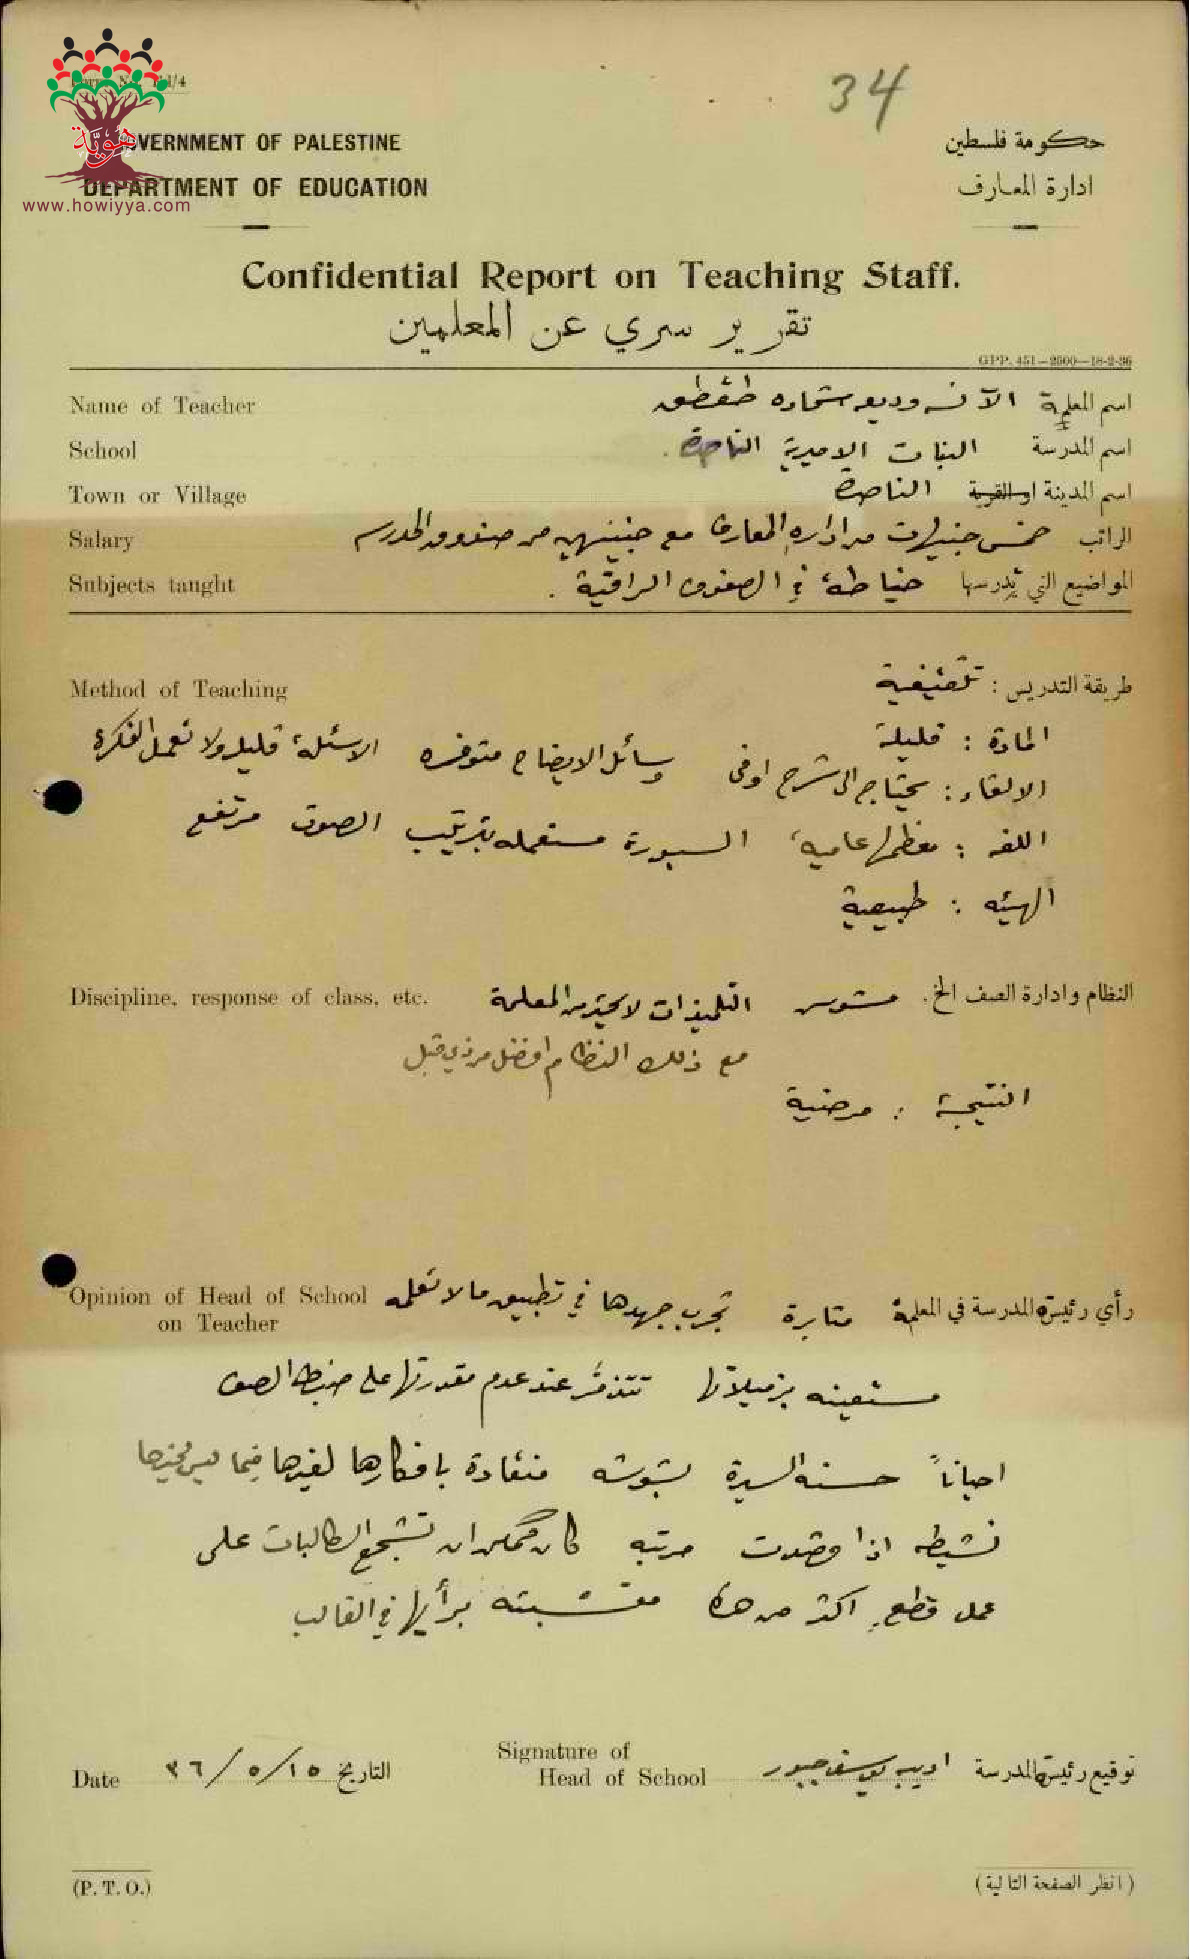 34
هوية
www.howiyya.com
GOVERNMENT OF PALESTINE
حكومة فلسطين
DEPARTMENT OF EDUCATION
ادارة المعارف
Confidential Report on Teaching Staff.
تقرير سري عن المعلمين
GPP. 451—2500—18-2-36
Name of Teacher
اسم المعلمة الآنسه وديعه شحاده طقطق
School
اسم المدرسة البنات الاميرية الناصرة.
Town or Village
اسم المدينة او القرية الناصرة
Salary
الراتب خمس جنيهات من اداره المعارف مع جنيهين من صندوق المدرسه
Subjects taught
المواضيع التي تدرسها خياطة في الصفوف الراقية.
Method of Teaching
طريقة التدريس: تلقينية
المادة: قليلة
الالقاء: يحتاج الى شرح اوفى وسائل الايضاح متوفره الاسئلة قليله ولا تعمل الفكرة
اللغه: معظمها عامية، السبورة مستعمله بترتيب الصوت مرتفع
الهيئه: طبيعية
Discipline, response of class, etc.
النظام وادارة الصف الخ. مشوس التلميذات لا يحترمن المعلمة
مع ذلك النظام افضل من ذي قبل
النتيجة: مرضية
Opinion of Head of School
on Teacher
رأي رئيسة المدرسة في المعلمة مثابرة تجرب جهدها في تطبيق ما لا تعلمه
مستعينه بزميلاتها تتذمر عند عدم مقدرتها على ضبط الصف
احياناً حسنة السيرة بشوشه منقادة بافكارها لغيرها فيما ليس لخيرها
نشيطه اذا قصدت مرتبه كان ممكن ان تشجع الطالبات على
عمل قطع اكثر من هذه متشبثه برأيها في الغالب
Date
التاريخ ١٥/٥/٣٦
Signature of
Head of School
توقيع رئيسة المدرسة اديبه يوسف جبور
(P. T. O.)
(انظر الصفحة التالية)